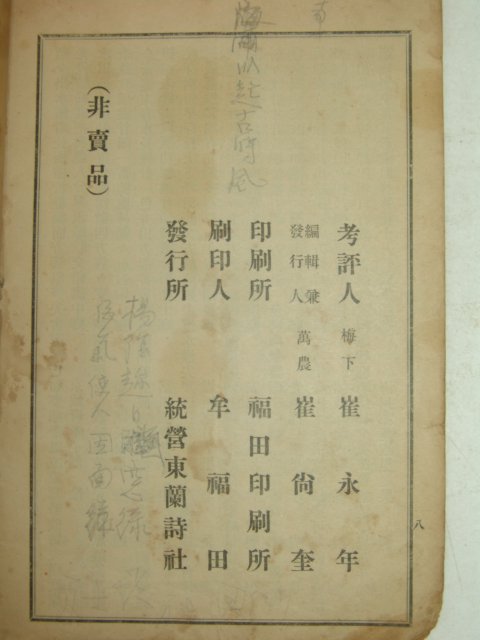 考評人 梅下 崔永年
編輯兼
發行人 萬農 崔尙奎
印刷所 福田印刷所
刷印人 牟福田
發行所 統營東蘭詩社
(非賣品)
八